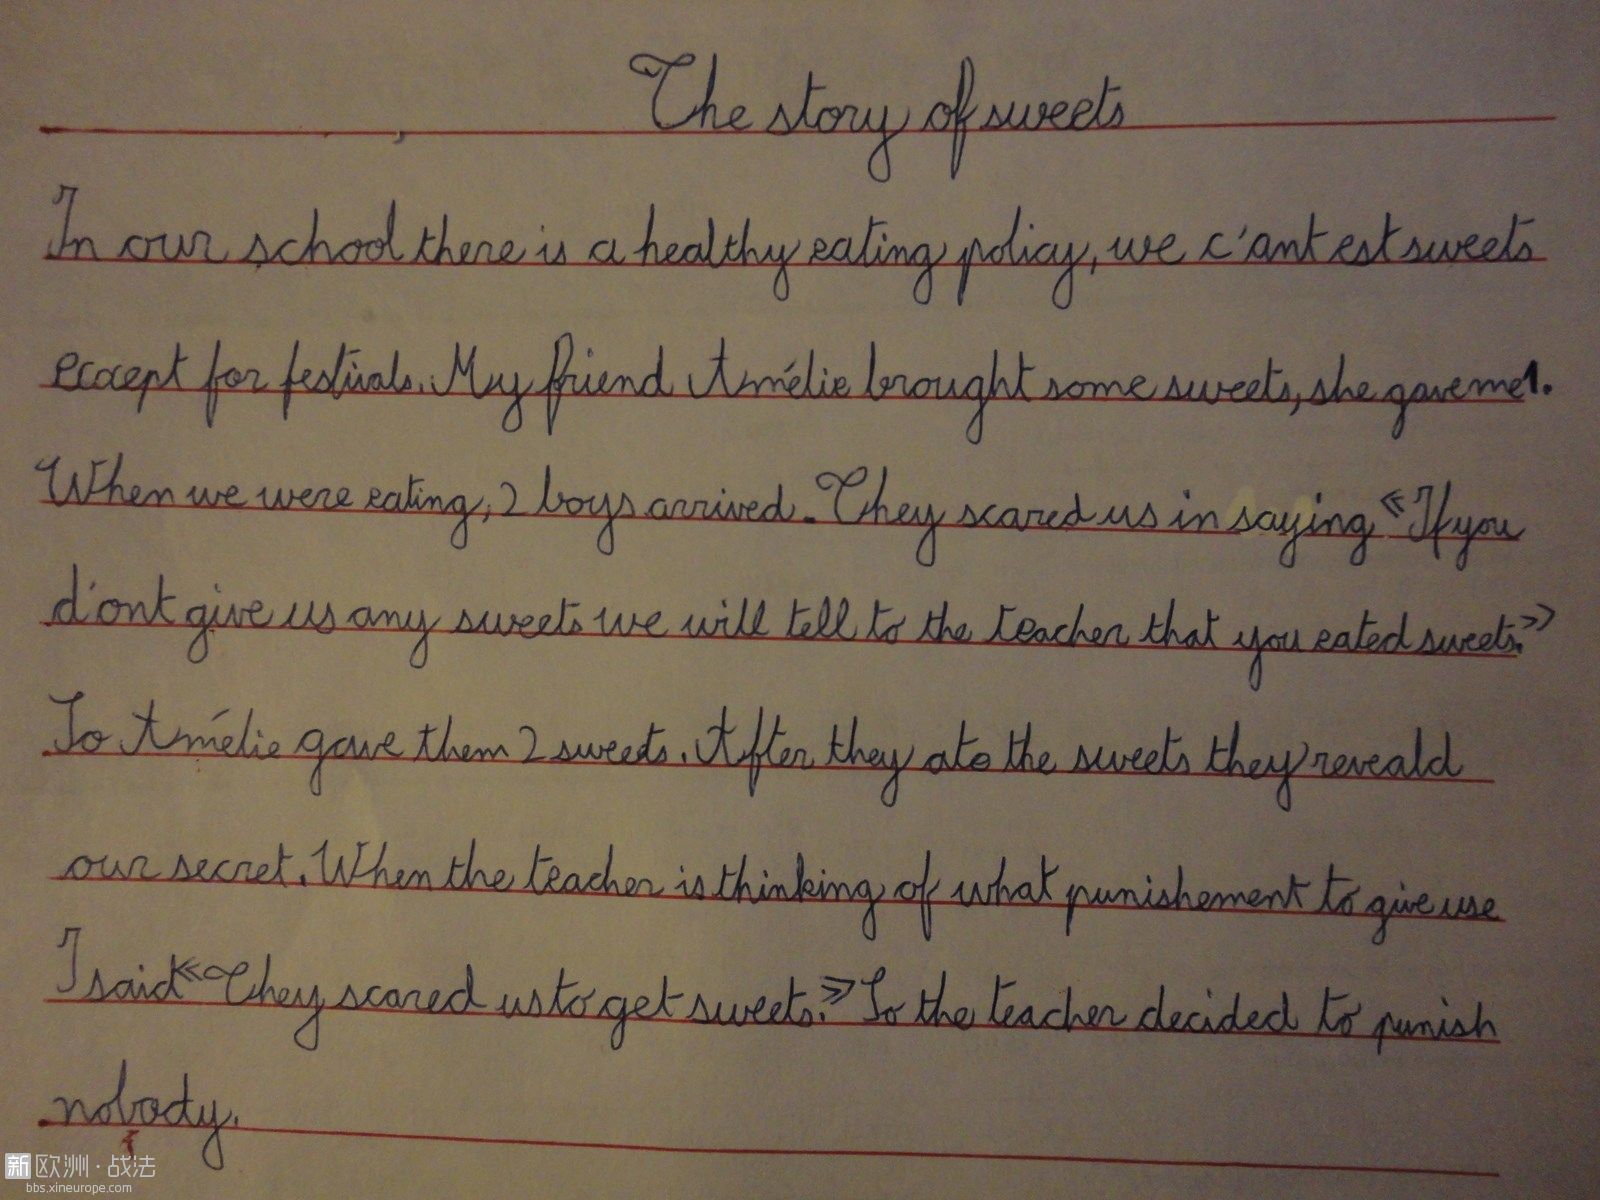 The story of sweets
In our school there is a healthy eating policy, we c'ant est sweets
eccept for festivals. My friend Amélie brought some sweets, she gave me 1.
When we were eating, 2 boys arrived. They scared us in saying «If you
d'ont give us any sweets we will tell to the teacher that you eated sweets.»
So Amélie gave them 2 sweets. After they ate the sweets they reveald
our secret. When the teacher is thinking of what punishement to give use
I said «They scared us to get sweets.» So the teacher decided to punish
nobody.
新欧洲·战法
bbs.xineurope.com